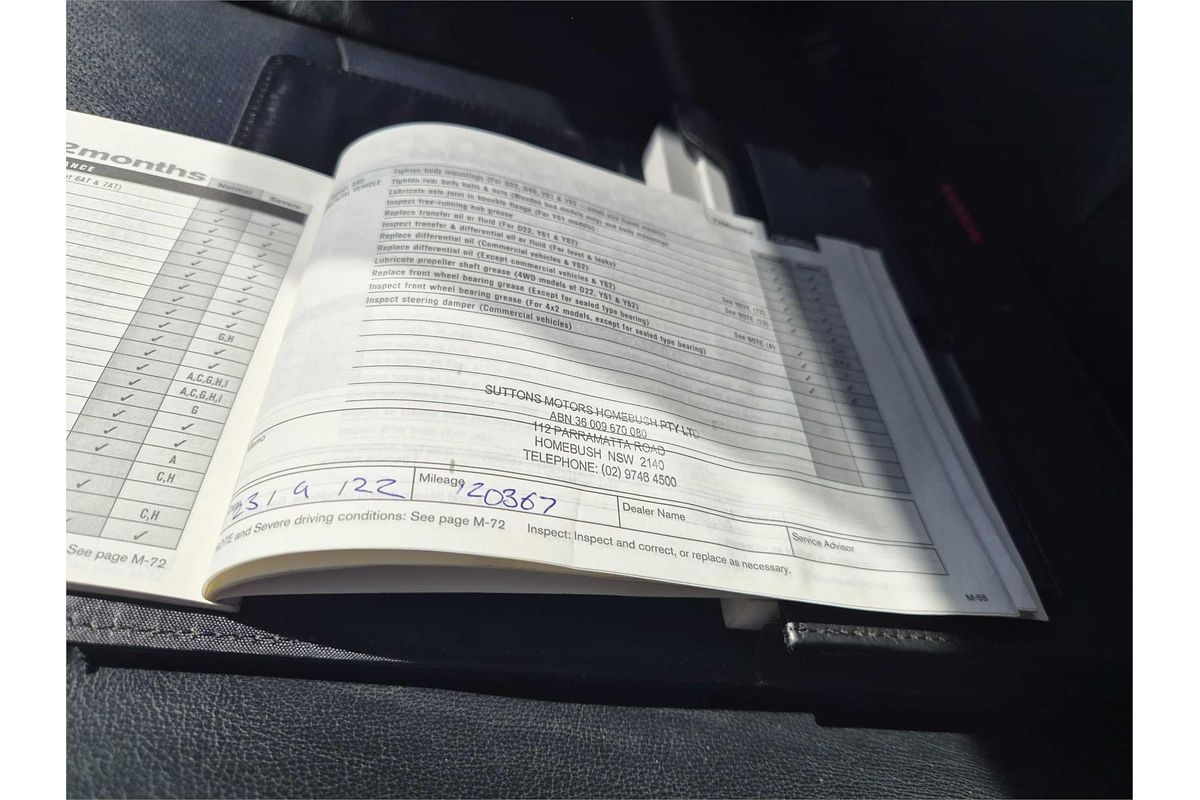 2months
ANCE
Normal Severe
or 6AT & 7AT)
G,H
A,C,G,H,I
A,C,G,H,I
G
A
C,H
C,H
See page M-72
Tighten body mountings (For D22, D40, Y61 & Y62
Tighten rear body bolts & nuts (Wooden bed models only) and body mountings
Lubricate axle joint in knuckle flange (For Y61 models)
Inspect free-running hub grease
Replace transfer oil or fluid (For D22, Y61 & Y62)
Inspect transfer & differential oil or fluid (For level & leaks)
Replace differential oil (Commercial vehicles & Y62)
Replace differential oil (Except commercial vehicles & Y62) See NOTE (12)
Lubricate propeller shaft grease (4WD models of D22, Y61 & Y62) See NOTE (12)
Replace front wheel bearing grease (Except for sealed type bearing)
Inspect front wheel bearing grease (For 4x2 models, except for sealed type bearing) See NOTE (4)
Inspect steering damper (Commercial vehicles)
SUTTONS MOTORS HOMEBUSH PTY LTD
ABN 36 009 670 080
112 PARRAMATTA ROAD
HOMEBUSH NSW 2140
TELEPHONE: (02) 9746 4500
23/9/22 Mileage 120367 Dealer Name Service Advisor
NOTE and Severe driving conditions: See page M-72 Inspect: Inspect and correct, or replace as necessary.
M-55